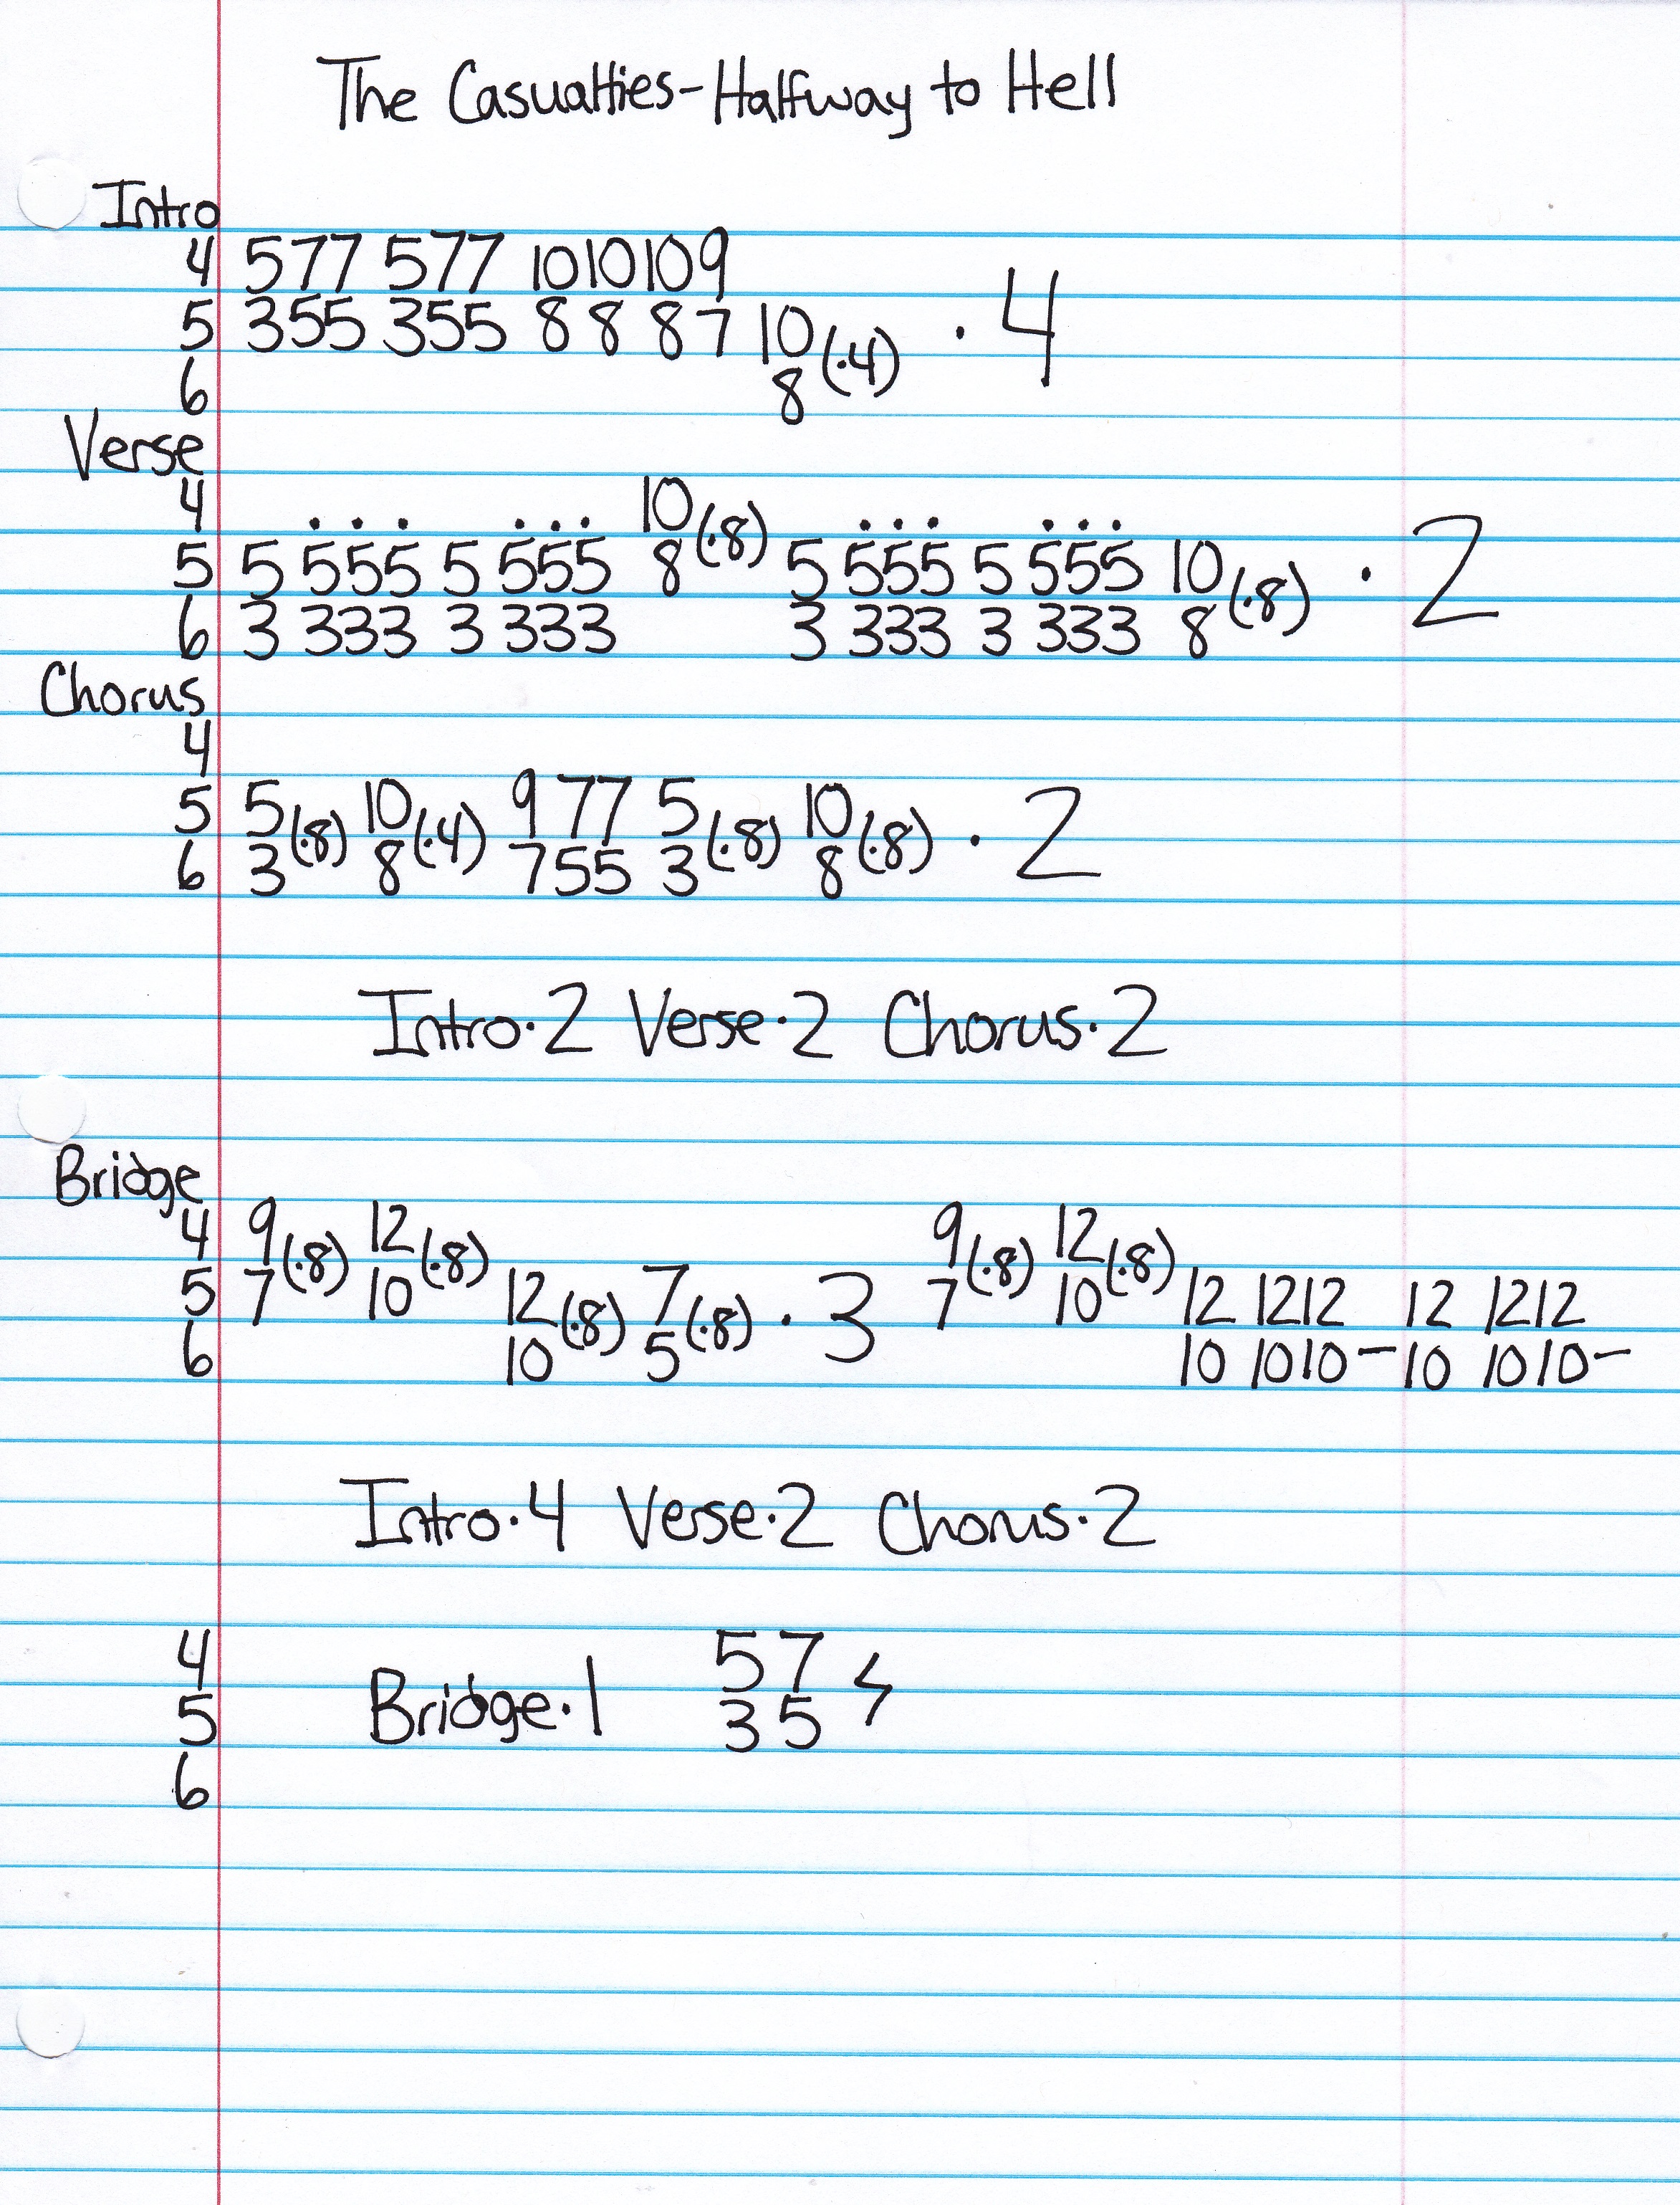 The Casualties-Halfway to Hell
Intro
4 577 577 1010109
5 355 355 8 8 87 10 (·4) · 4
6 8
Verse
4 . . . . . . 10 (·8) . . . . . .
5 5 555 5 555 8 5 555 5 555 10 (·8) · 2
6 3 333 3 333 3 333 3 333 8
Chorus
4
5 5 (·8) 10 (·4) 9 77 5 (·8) 10 (·8) · 2
6 3 8 7 55 3 8
Intro·2 Verse·2 Chorus·2
Bridge
4 9 (·8) 12 (·8) 9 (·8) 12 (·8)
5 7 10 12 (·8) 7 (·8) · 3 7 10 12 1212 12 1212
6 10 5 10 1010– 10 1010–
Intro·4 Verse·2 Chorus·2
4 57
5 Bridge·1 35
6